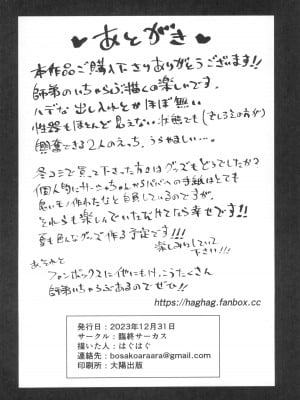 あとがき
本作品ご購入下さりありがとうございます!!
師弟のいちゃらぶ描くの楽しいです。
ハデな出し入れとかほぼ無い
性器もほとんど見えない状態でも(むしろその方が)
興奮できる2人のえっち、うらやましい…。
冬コミで買って下さった方はグッズもどうでしたか?
個人的に ちゃんから への手紙はとても
良いもの作れたなと自負しているのですが、
それらも楽しんでいただけてたら幸せです!!
夏も色んなグッズ作る予定です!!!
楽しみにしていて
下さい!!!
あとわりと
ファンボックスに他にもけっこうたくさん
師弟いちゃらぶあるのでぜひ!!
https://haghag.fanbox.cc
発行日:2023年12月31日
サークル:臨終サーカス
描いた人:はぐはぐ
連絡先:bosakoaraara@gmail.com
印刷所:大陽出版